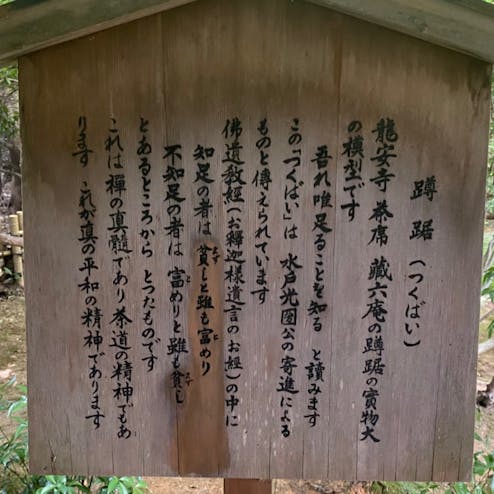 蹲踞(つくばい)
龍安寺茶席 藏六庵の蹲踞の實物大
の模型です
吾れ唯足ることを知る と讀みます
この「つくばい」は 水戸光圀公の寄進による
ものと傳えられています
佛遺教經(お釋迦樣遺言のお經)の中に
知足の者は 貧しと雖も富めり
不知足の者は 富めりと雖も貧し
とあるところから とつたものです
これは禪の真髓であり茶道の精神でもあ
ります これが真の平和の精神であります